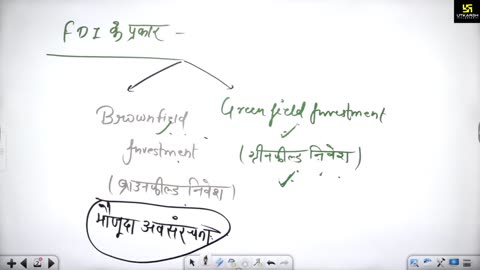 FDI के प्रकार -
Brownfield Investment
(ब्राउनफील्ड निवेश)
मौजूदा अवसंरचना
Greenfield Investment
(ग्रीनफील्ड निवेश)
UTKARSH